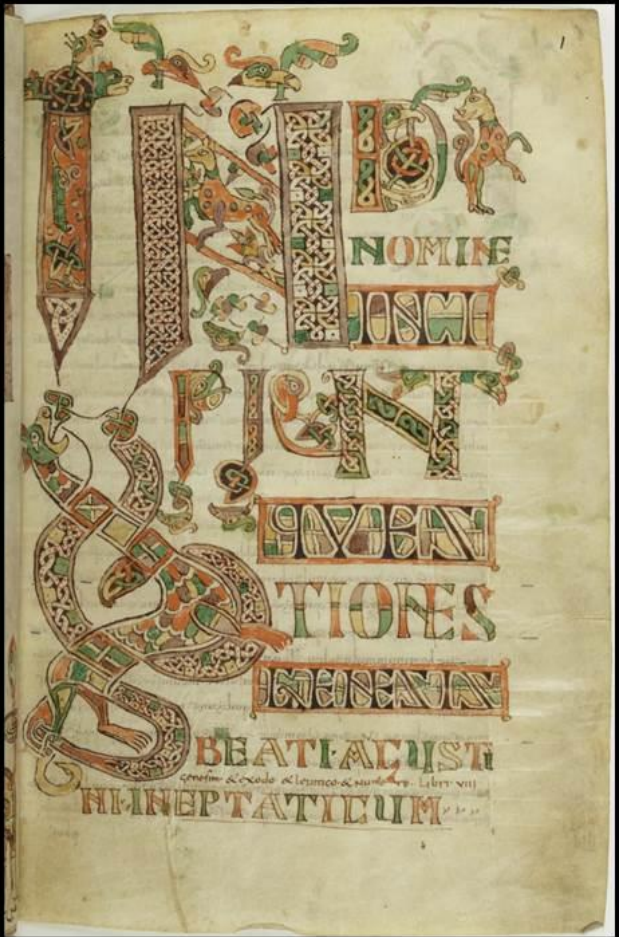 IN DI
NOMINE
INCI
PIUNT
TIONES
BEATI·AGUSTI
genesim & exodo & leuitico & numero. Libri VII
NI·IN EPTATICUM